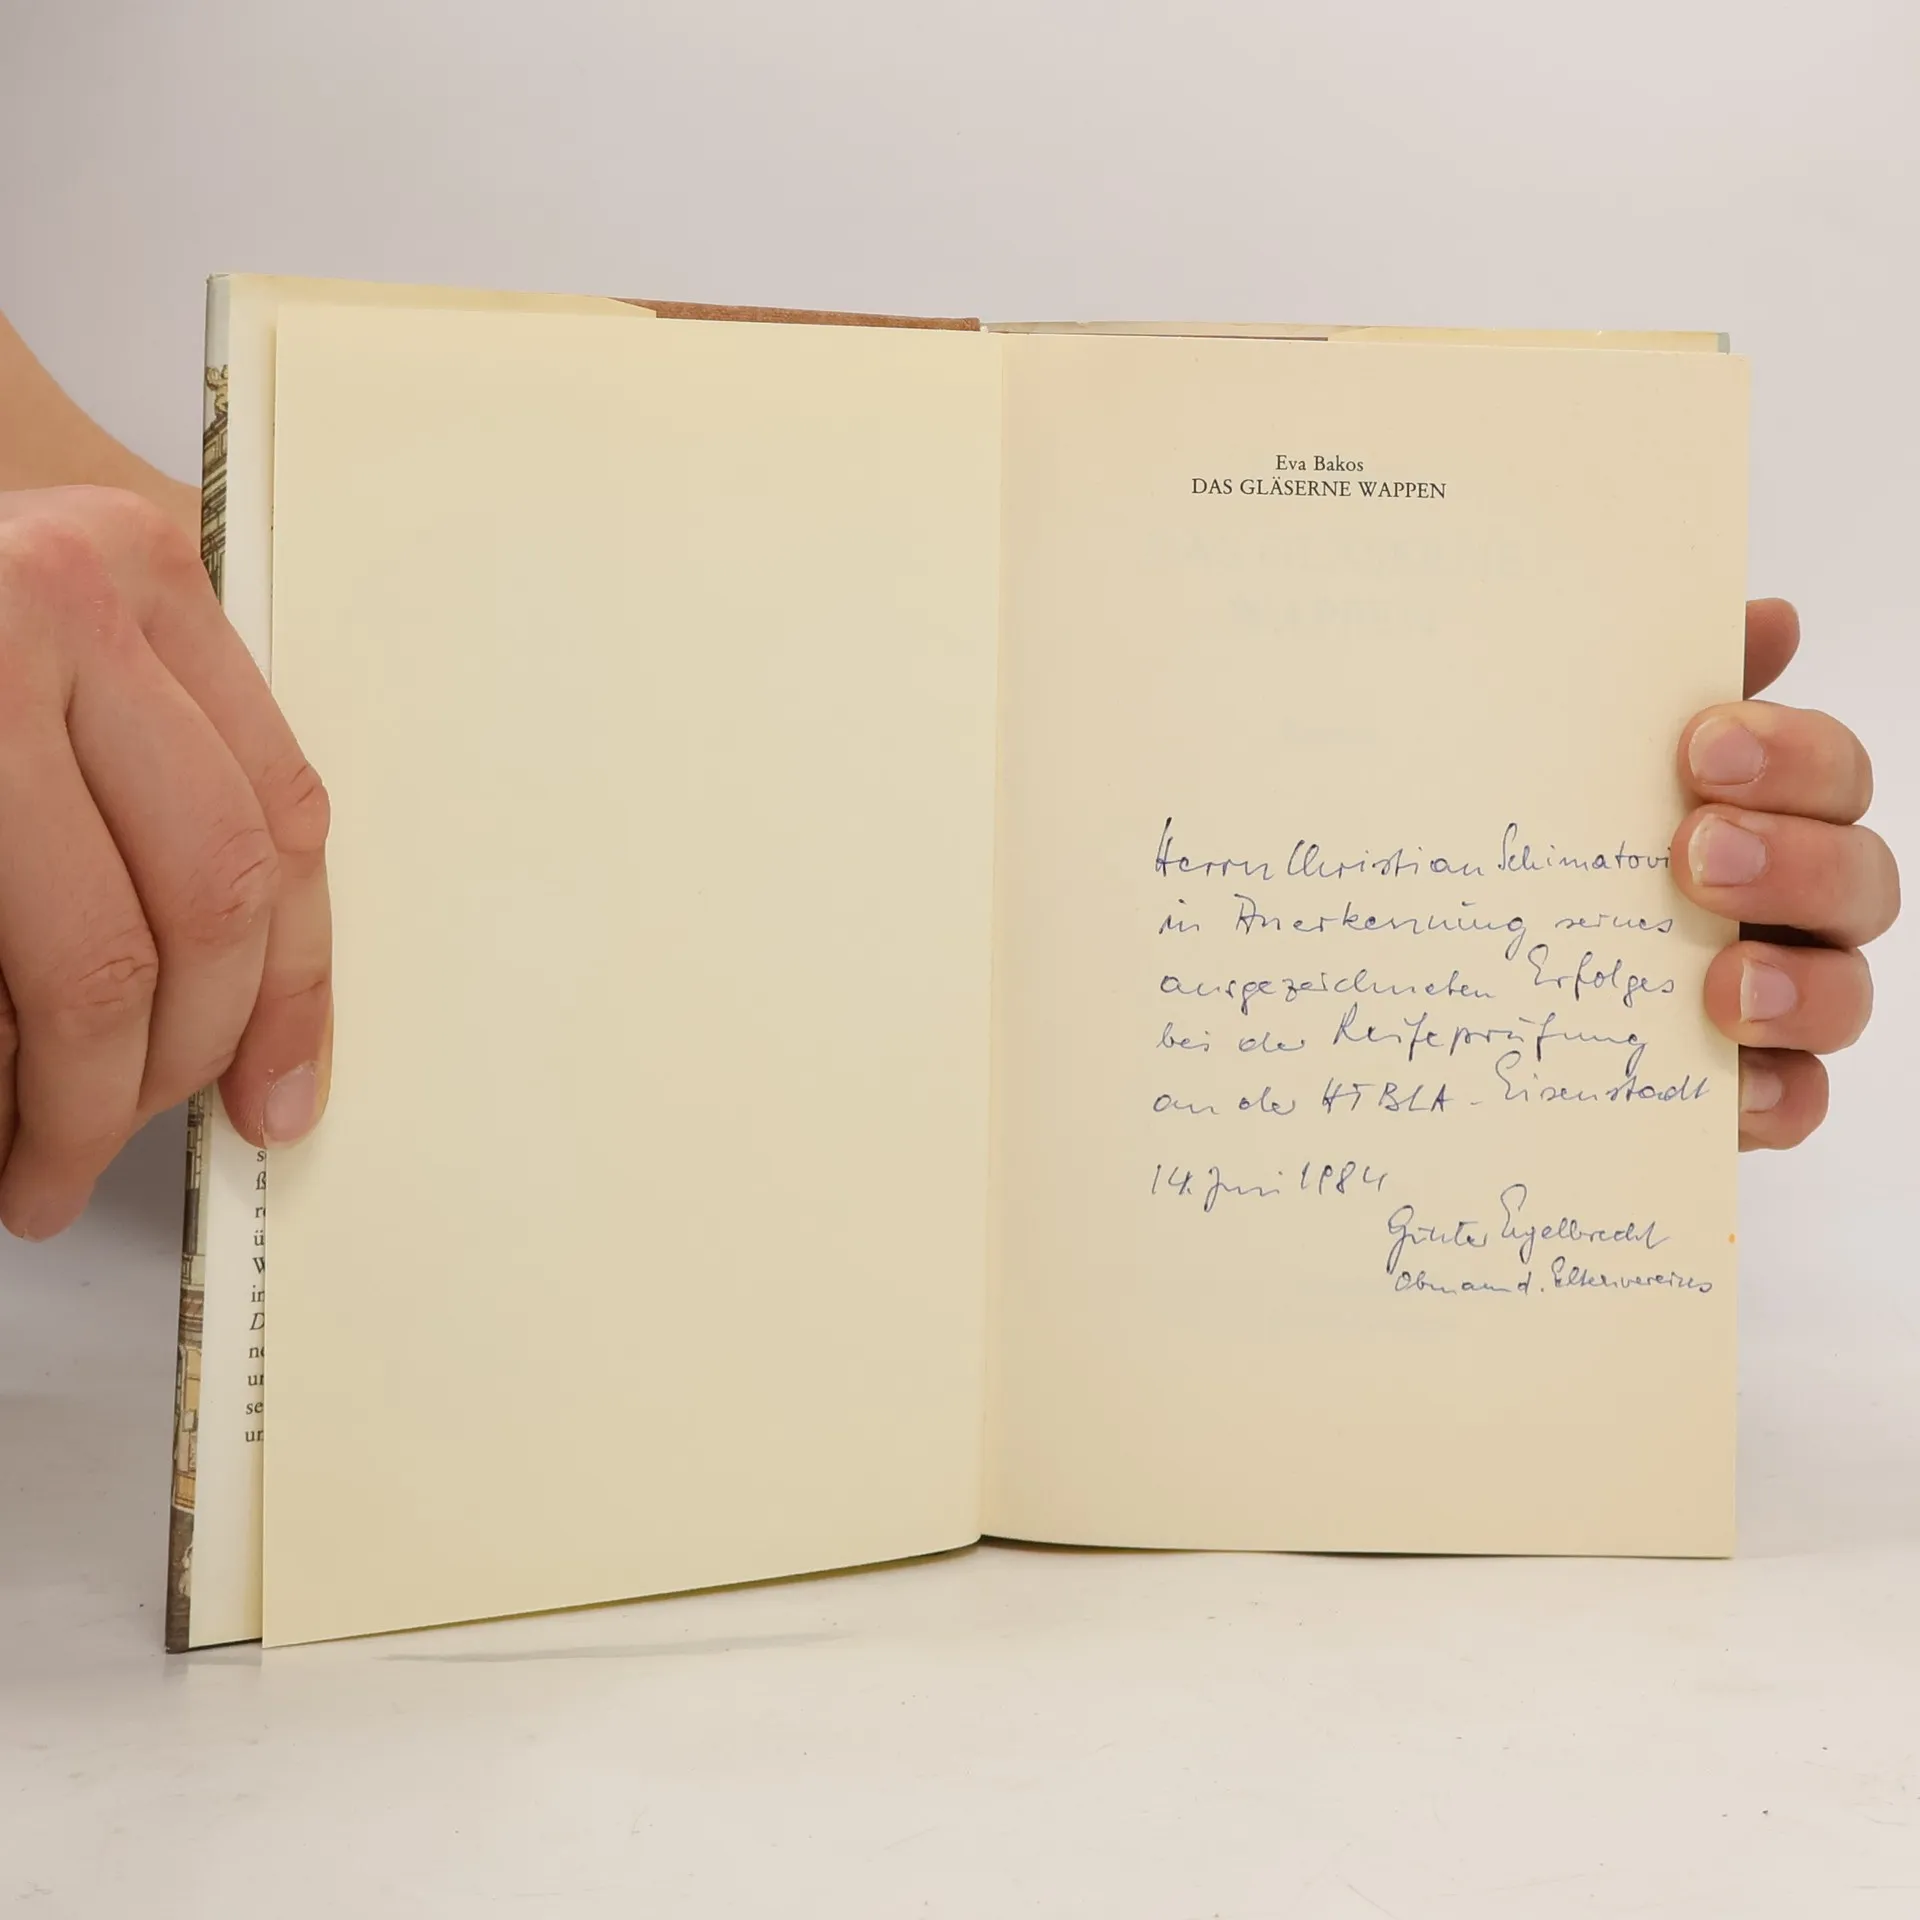 Eva Bakos
DAS GLÄSERNE WAPPEN
Herrn Christian Schimatovi
in Anerkennung seines
ausgezeichneten Erfolges
bei der Reifeprüfung
an der HTBLA - Eisenstadt
14. Juni 1984
Günter Engelbrecht
Obmann d. Elternvereins
s
ß
re
ü
W
in
D
ne
un
se
un